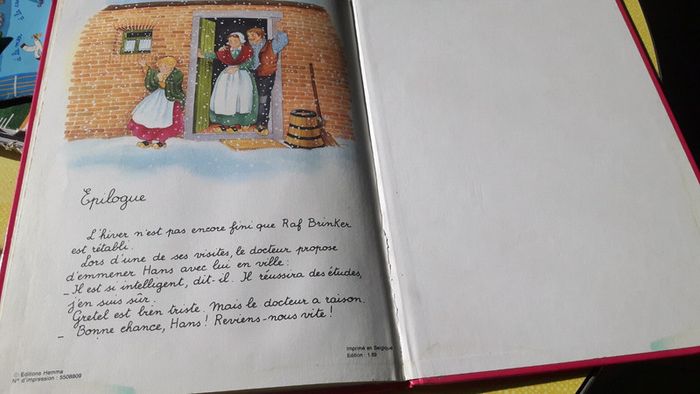 Epilogue
L'hiver n'est pas encore fini que Raf Brinker
est rétabli.
Lors d'une de ses visites, le docteur propose
d'emmener Hans avec lui en ville :
_ Il est si intelligent, dit-il. Il réussira des études,
j'en suis sûr.
Gretel est bien triste. Mais le docteur a raison.
_ Bonne chance, Hans ! Reviens-nous vite !
Imprimé en Belgique
Edition : 1.89
© Editions Hemma
N° d'impression : 5508809